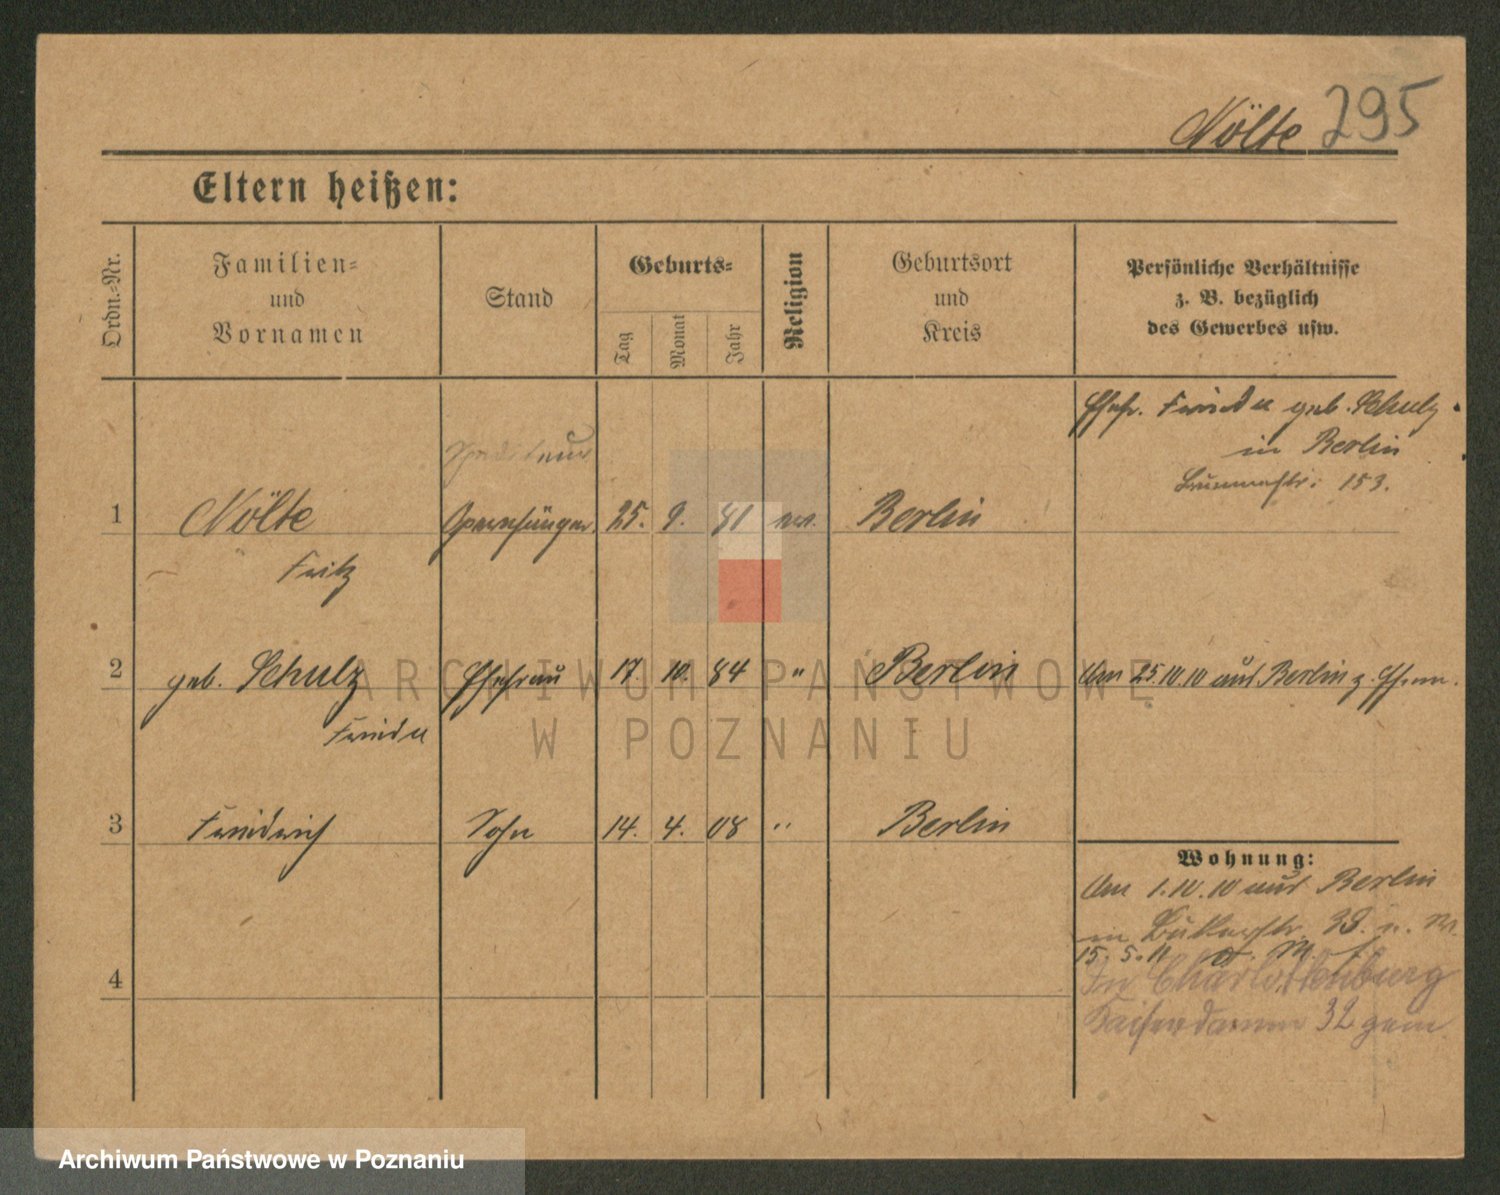 Nölte 295
Eltern heißen:
Ordn.-Nr.
Familien-
und
Vornamen
Stand
Geburts-
Tag
Monat
Jahr
Religion
Geburtsort
und
Kreis
Persönliche Verhältnisse
z. B. bezüglich
des Gewerbes usw.
Ehefr. Frieda geb. Schulz
in Berlin
153.
1 Nölte Opernsänger 25. 9. 81 ev. Berlin
Fritz
2 geb. Schulz Ehefrau 17. 10. 84 " Berlin Am 25.10.10 aus Berlin z. Ehem.
Frieda
3 Friedrich Sohn 14. 4. 08 " Berlin
Wohnung:
Am 1.10.10 aus Berlin
in 38.
15. 5. 11
In Charlottenburg
Kaiserdamm 32 gem
4
ARCHIWUM PAŃSTWOWE
W POZNANIU
Archiwum Państwowe w Poznaniu